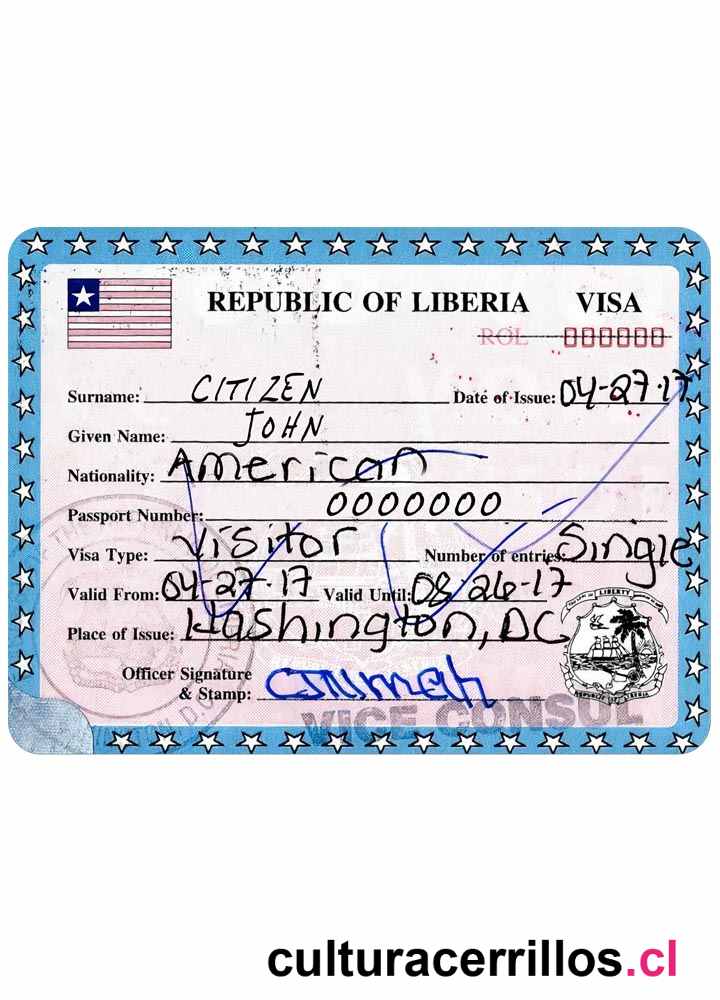 REPUBLIC OF LIBERIA VISA
ROL 000000
Surname: CITIZEN Date of Issue: 04-27-17
Given Name: JOHN
Nationality: American
Passport Number: 0000000
Visa Type: Visitor Number of entries: Single
Valid From: 04-27-17 Valid Until: 08-26-17
Place of Issue: Washington, DC
LIBERTY
REPUBLIC OF LIBERIA
Officer Signature
& Stamp:
VICE CONSUL
culturacerrillos.cl